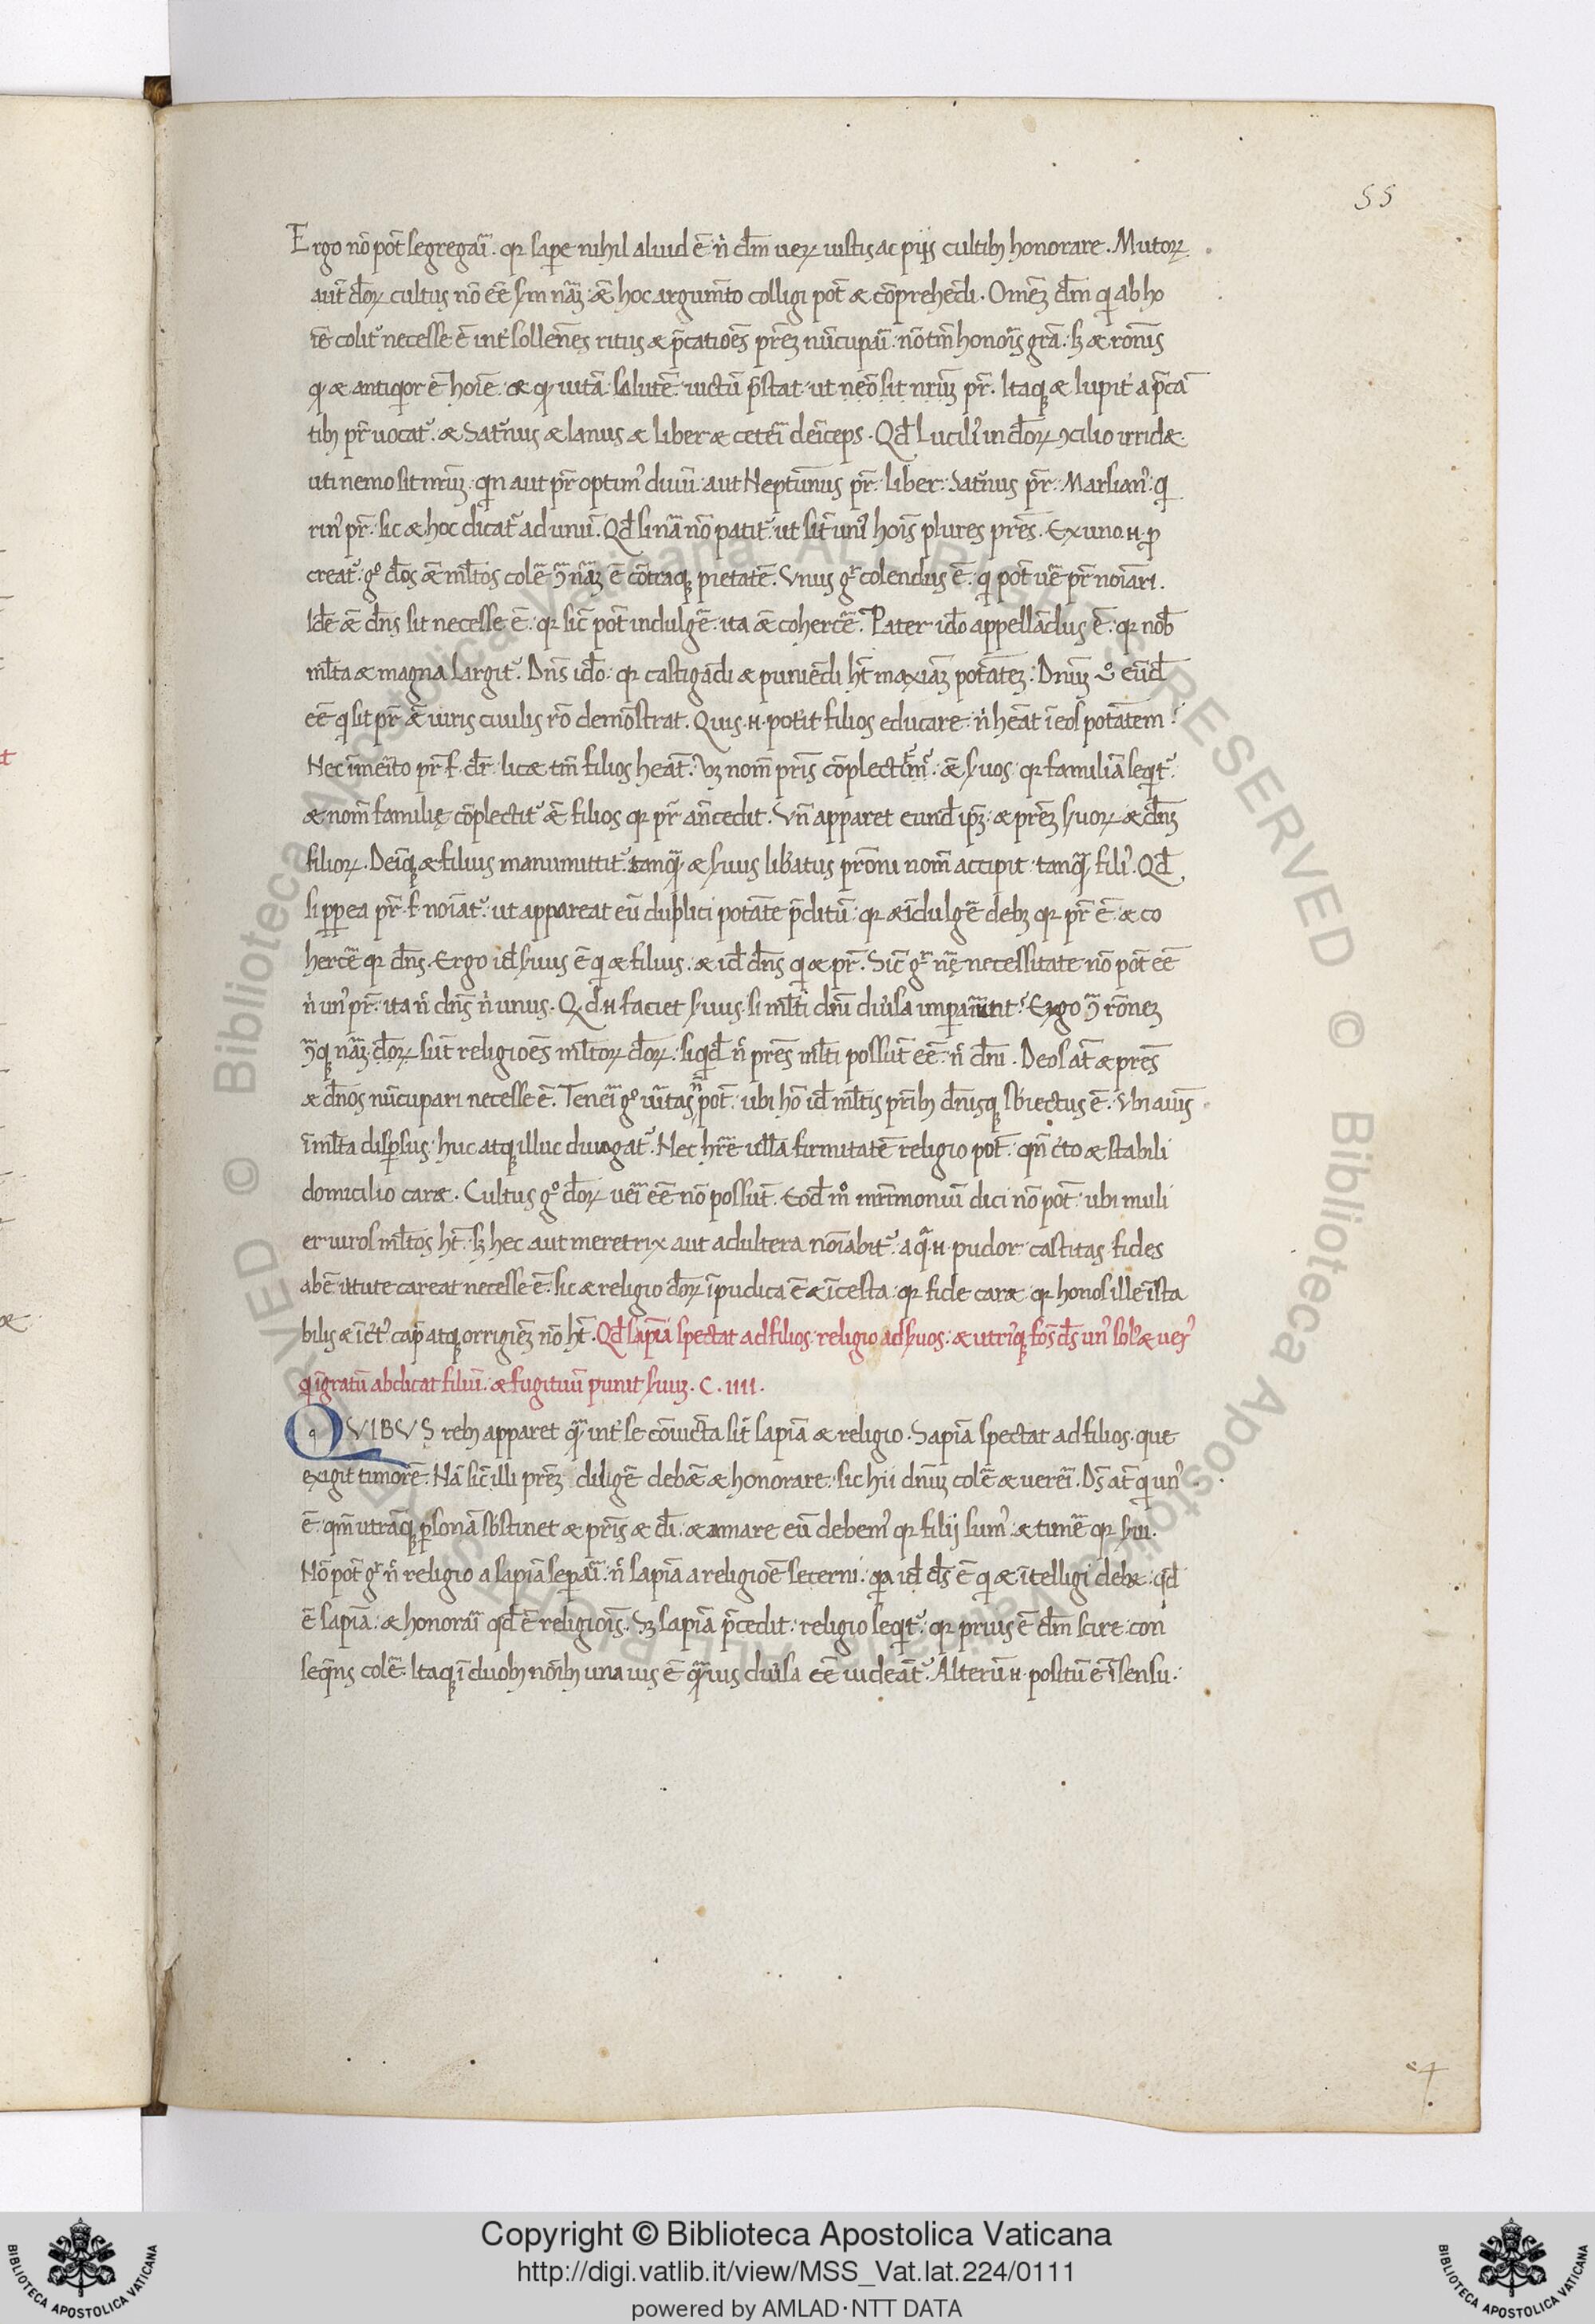 55
Ergo nō pōt segregāi. qꝛ saꝑe nihil aliud ē. n̄ dm̄ ueꝝ iustis ac piis cultibꝫ honorare. Multoꝝ
aūt dōꝝ cultus nō ēē hoc argum̄to colligi pōt & cōprehēdi. Omēꝫ dm̄ qi ab ho
īe colit᷑ necesse ē int̓ sollēnes ritus & p̄catiōes pr̄eꝫ nūcupāi. nō tm̄ honoris gr̄a. sꝫ & rōnis
& antiqior ē hoīe. & uitā. salutē. uictū p̄stat. ut Itaqꝫ & Iupit̓ a p̄cā
tibꝫ pr̄ uocat᷑. & Sat᷑nus & Ianus & liber & cetēi deīceps. Qd̄ Lucili᷒ in dōꝝ ꝯcilio irridꝫ.
uti nemo sit nr̄uꝫ. qin aut pr̄ optim᷒ diuū. aut Neptūnus pr̄. liber. Sat᷑nus pr̄. Marsian᷒. q
rin᷒ pr̄. sic & hoc dicat᷑ ad unū. Qd̄ si nā nō patit᷑. ut sīt uni᷒ hoīs plures pr̄es. Ex uno .N. ꝓ
creat᷑. gͦ dōs ēt ml̄tos colē ē cōtraqꝫ pietatē. Unus gͬ colendus ē. qi pōt uē pr̄ noīari.
Idē ēt dn̄s sit necesse ē. qꝛ sic̄ pōt indulgē. ita ēt cohercē. Pater idō appellādus ē. qꝛ nob̄
ml̄ta & magna largit᷑. Dn̄s idō. qꝛ castigādi & puniēdi ht̄ maxīaꝫ potātēꝫ. Dn̄uꝫ eūd̄
ēē qi sit pr̄ ēt iuris ciuilis rō demōstrat. Quis .N. pot̓it filios educare. n̄ hēat ī eos potātem.
Nec īmēito pr̄ f. dr̄. licꝫ tm̄ filios hēat. Vꝫ nom̄ pr̄is cōplectit᷑ ēt suos. qꝛ familiā seqit᷑.
& nom̄ familię cōplectit᷑ ēt filios qꝛ pr̄ ān̄cedit. Vn̄ apparet eund̄ ip̄ꝫ. & pr̄eꝫ suoꝝ & dn̄ꝫ
filioꝝ. Deīqꝫ & filius manumittit᷑. tanqꝫ & suus lib̓atus pr̄oni nom̄ accipit. tanqꝫ fili᷒. Qd̄
si ꝓꝑea pr̄ f. noīat᷑. ut appareat eū duplici potāte p̄ditū. qꝛ & īdulgē debꝫ qꝛ pr̄ ē. & co
hercē qꝛ dn̄s. Ergo id suus ē qi & filius. & id dn̄s qi & pr̄. Sic̄ gͬ necessitate nō pōt ēē
n̄ un᷒ pr̄. ita n̄ dn̄s n̄ unus. Qd .N. faciet suus. si ml̄ti dn̄i diu̓sa impāuint? Ergo rōneꝫ
dōꝝ sūt religiōes ml̄toꝝ dōꝝ. siqid̄ n̄ pr̄es ml̄ti possūt ēē. n̄ dn̄i. Deos at̄ & pr̄es
& dn̄os nūcupari necesse ē. Tenēi gͦ uītas n̄ pōt. ubi hō id̄ ml̄tis pr̄ibꝫ dn̄isqꝫ sb̄iectus ē. Vbi auis
ī ml̄ta disꝑsus. huc atqꝫ illuc diuagat᷑. Nec hr̄e ullā firmitatē religio pōt. qn̄ c̓to & stabili
domicilio carꝫ. Cultus gͦ dōꝝ uēi ēē nō possūt. Eod̄ mͦ mr̄imoniū dici nō pōt. ubi muli
er uiros ml̄tos ht̄. sꝫ hec aut meretrix aut adultera noīabit᷑. a qa .N. pudor. castitas. fides
abē. u̓tute careat necesse ē. sic & religio dōꝝ īpudica ē & īcesta. qꝛ fide carꝫ. qꝛ honos ille īsta
bilis & īc̓t᷒ cap̄ atqꝫ orrigiēꝫ nō ht̄. Qd̄ sapīā spectat ad filios. religio ad suos. & utri᷒qꝫ fōs d̄s un᷒ sol᷒ & uer᷒
qi īgratū abdicat filiū. & fugitiuū punit suuꝫ. C. IIII.
QVIBVS rebꝫ apparet qꝫ int̓ se cōiūcta sīt sapīa & religio. Sapīa spectat ad filios. que
exigit timorē. Nā sic̄ illi pr̄eꝫ diligē debēt & honorare. sic hii dn̄uꝫ colē & uerēi. Ds̄ at̄ qi un᷒
ē. qm̄ utrāqꝫ ꝑsonā sb̄stinet & pr̄is & dn̄i. & amare eū debem᷒ qꝛ filij sum᷒. & timē qꝛ sui.
Nō pōt gͬ n̄ religio a sapīa seꝑāi. n̄ sapīa a religiōe secerni. qia id̄ d̄s ē qi & ītelligi debꝫ. qd̄
ē sapīa. & honorāi qd̄ ē religiōis. Sꝫ sapīa p̄cedit. religio seqit᷑. qꝛ prius ē dm̄ scire. con
seqēns colē. Itaqꝫ ī duobꝫ noībꝫ una uis ē qꝫuis diu̓sa ēē uideāt᷑. Alterū .N. positū ē ī sensu.
Copyright © Biblioteca Apostolica Vaticana
http://digi.vatlib.it/view/MSS_Vat.lat.224/0111
powered by AMLAD·NTT DATA